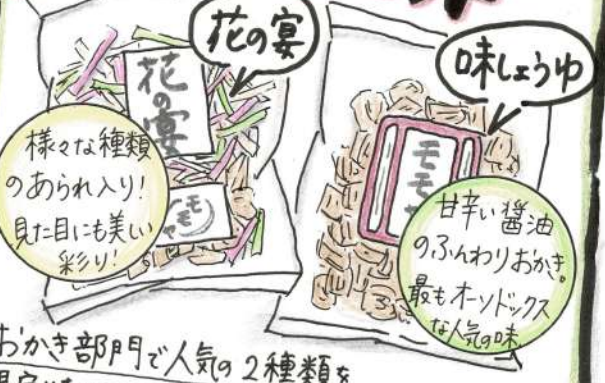 花の宴
味しょうゆ
花の宴
モモヤ
様々な種類
のあられ入り!
見た目にも美しい
彩り!
甘辛い醤油
のふんわりおかき。
最もオーソドックス
な人気の味
おかき部門で人気の2種類を